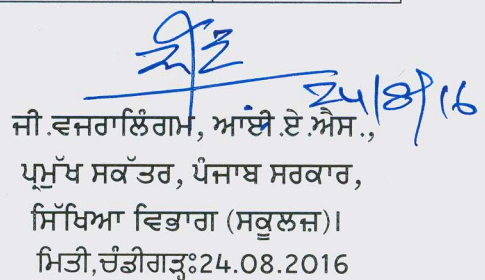 24/8/16
ਜੀ.ਵਜਰਾਲਿੰਗਮ, ਆਈ.ਏ.ਐਸ.,
ਪ੍ਰਮੁੱਖ ਸਕੱਤਰ, ਪੰਜਾਬ ਸਰਕਾਰ,
ਸਿੱਖਿਆ ਵਿਭਾਗ (ਸਕੂਲਜ਼)।
ਮਿਤੀ,ਚੰਡੀਗੜ੍ਹਃ24.08.2016